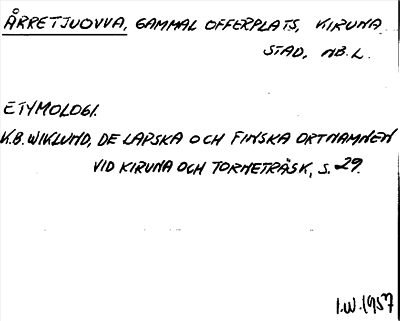 ÅRRETJUOVVA, GAMMAL OFFERPLATS, KIRUNA
STAD, NB.L.
ETYMOLOGI.
K.B. WIKLUND, DE LAPSKA OCH FINSKA ORTNAMNEN
VID KIRUNA OCH TORNETRÄSK, S. 29.
I.W. 1957